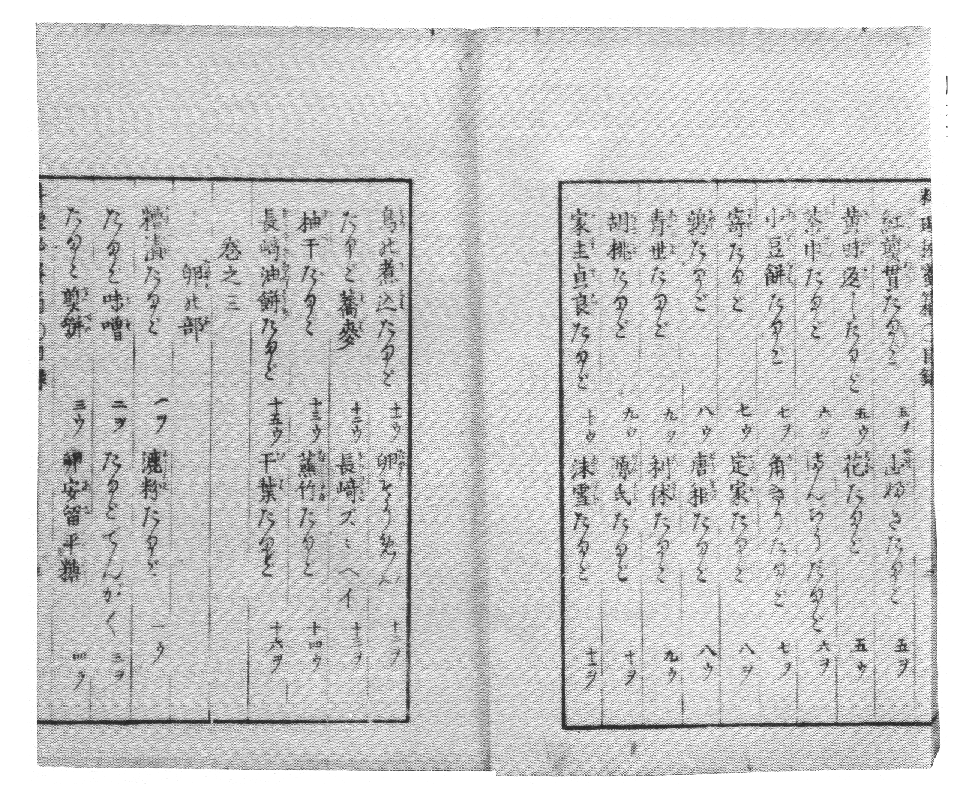 料理珍蜜箱 目録
紅葉貫たまご 五ヲ 山ぶきたまご 五ヲ
黄味返したまご 五ウ 花たまご 五ウ
茶巾たまご 六 まんぢうたまご 六ヲ
小豆餅たまご 七ヲ 角ぎうたまご 七ヲ
寄たまご 七ウ 定家たまご 八ヲ
鶏たまご 八ウ 唐揚たまご 八ウ
青世たまご 九ヲ 利休たまご 九ウ
胡桃たまご 九ウ 源氏たまご 十ヲ
家主貞良たまご 十ウ 沫雪たまご 十一ヲ
鳥の煮込たまご 十一ウ 卵そうめん 十二ヲ
たまご蕎麥 十二ウ 長崎ズヽヘイ 十三ヲ
柚干たまご 十三ウ 蒸竹たまご 十四ウ
長崎油餅たまご 十五ウ 干葉たまご 十六ヲ
巻之三
卵の部
糟漬たまご 一ヲ 漉粉たまご 一ウ
たまご味噌 二ヲ たまごでんがく 三ヲ
たまご煎餅 三ウ 卵安留平糖 四ウ